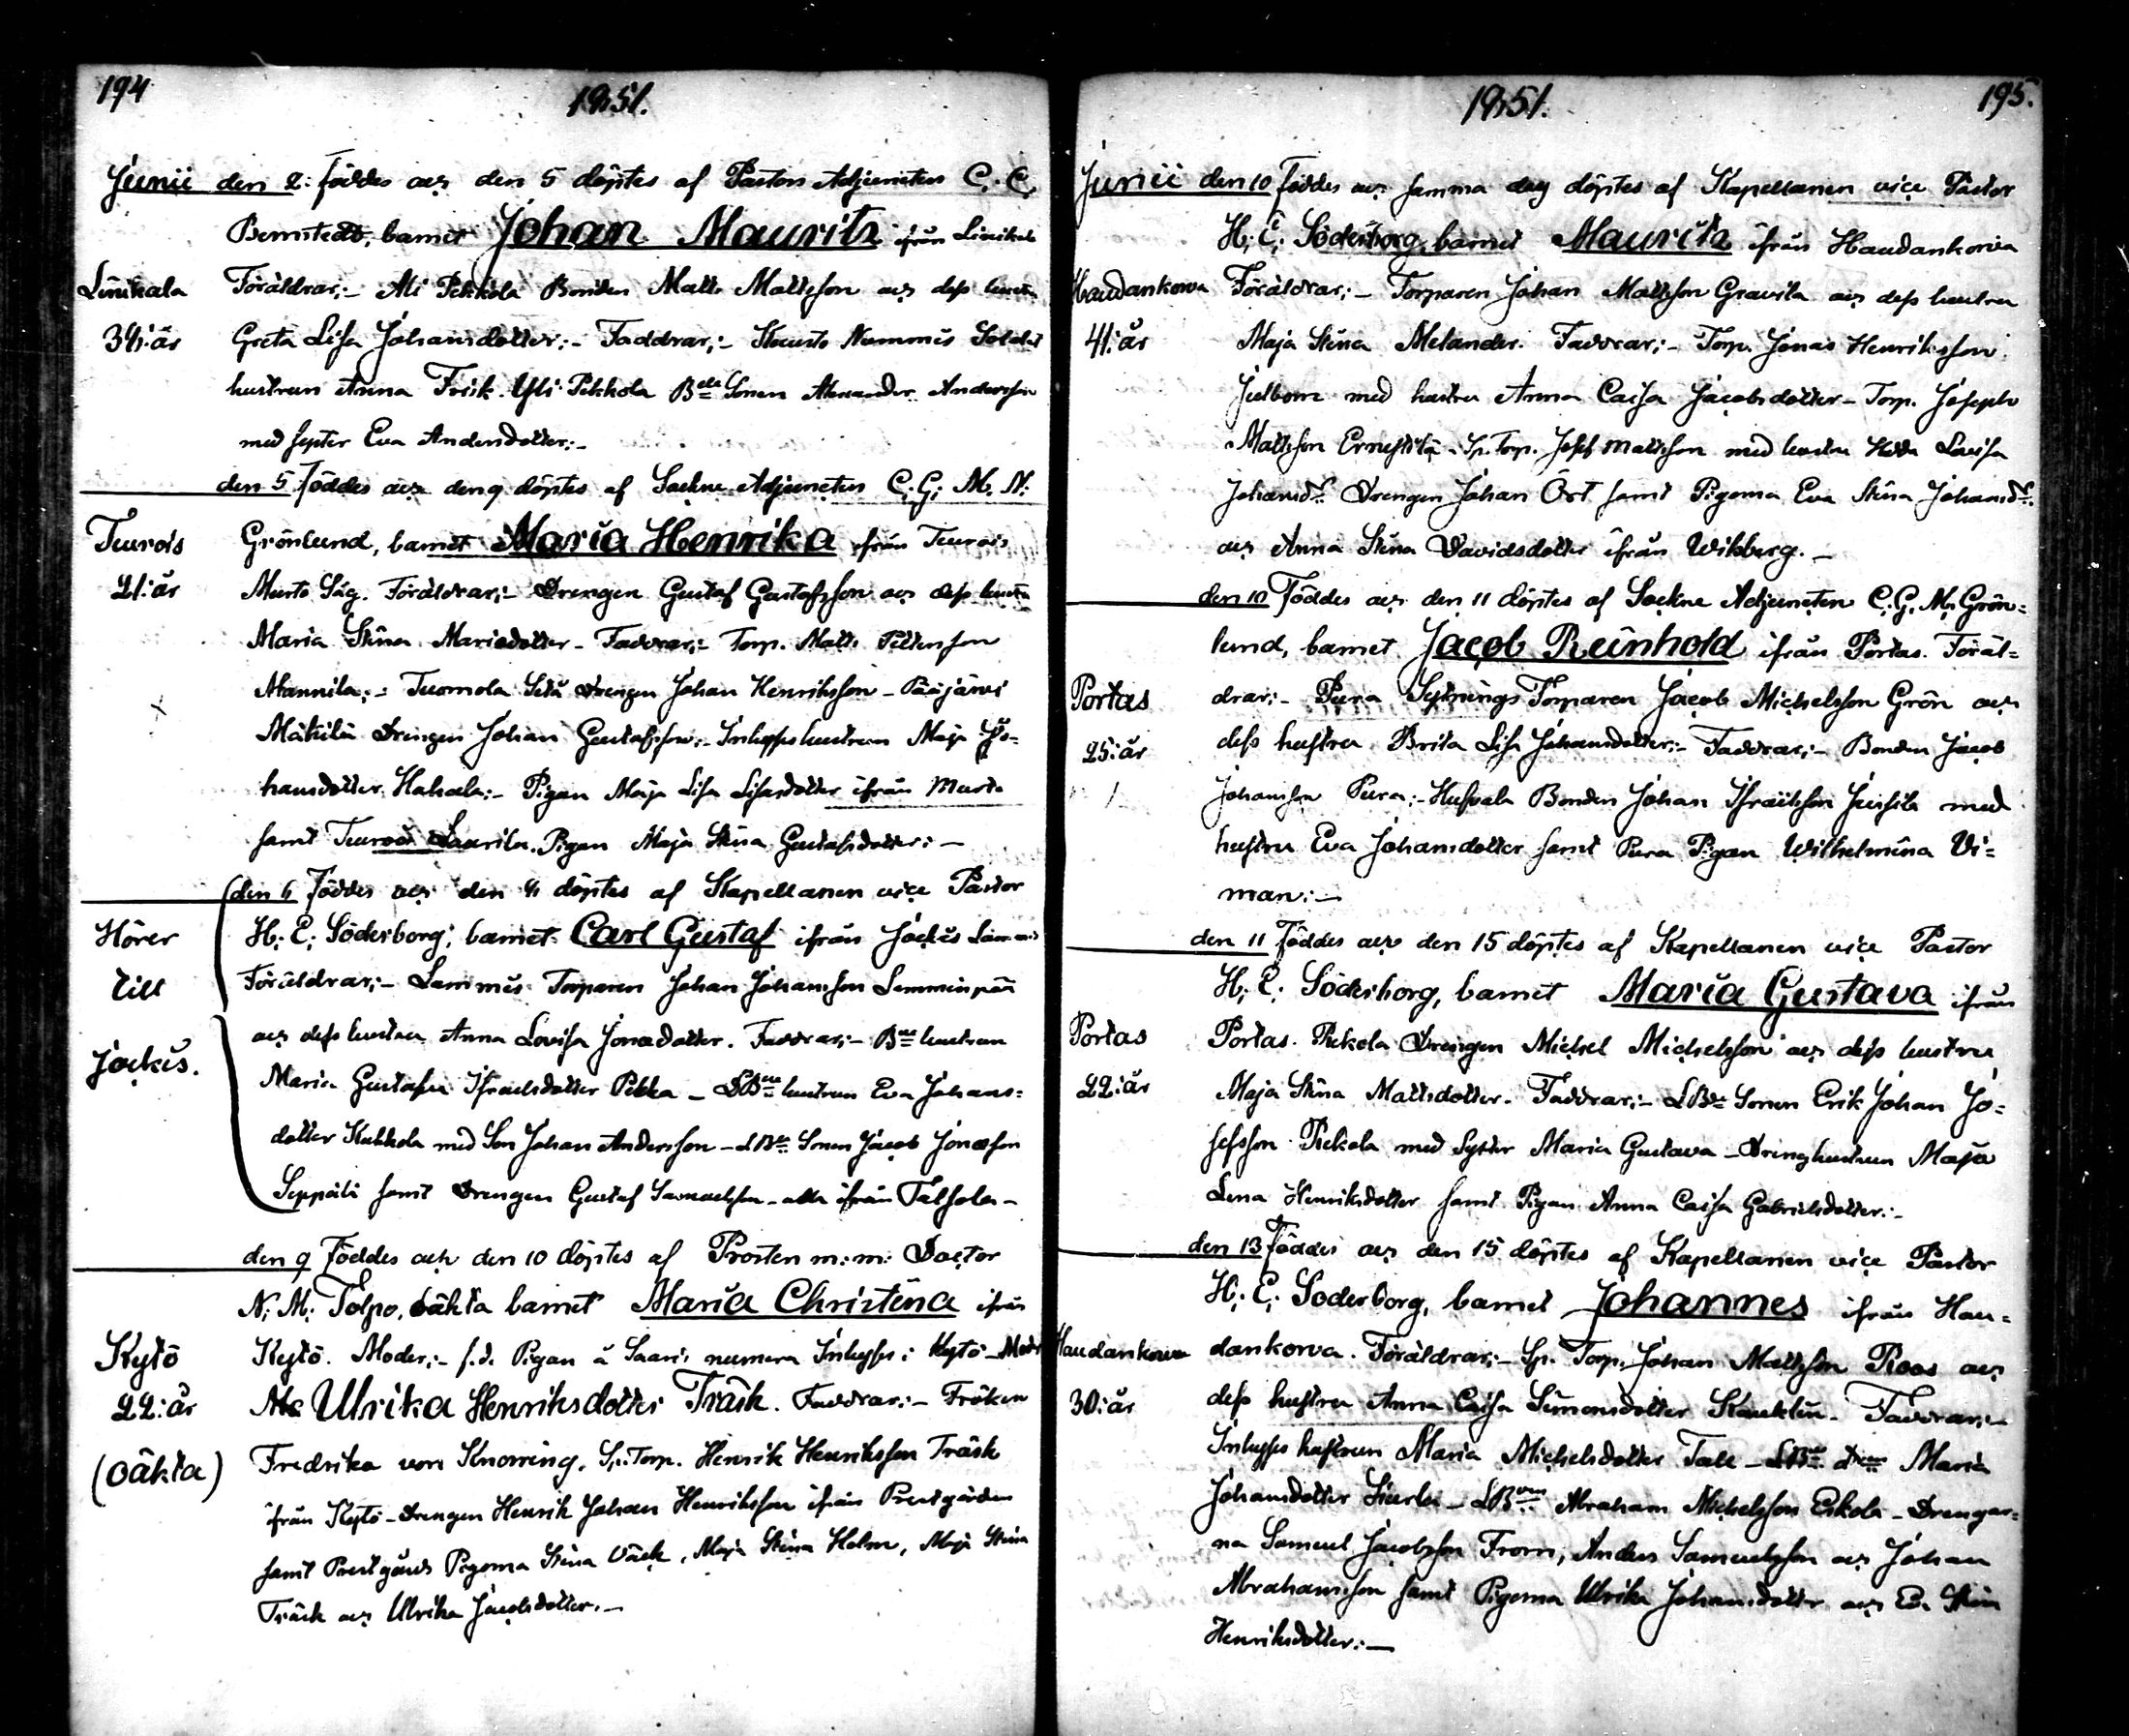 194
1851.
Junii den 2: föddes och den 5 döptes af Pastors Adjuncten C. E.
Bernstedt, barnet Johan Mauritz ifrån Liinikala
Liinikala
Föräldrar:- Ali Pekkola Bonden Matts Mattsson och dess hustru
34:år
Greta Lisa Johansdotter:- Faddrar:- Nummis Soldat
hustrun Anna Frisk. Yli Pekkola Bde Sonen Alexander Andersson
med syster Eva Andersdotter:-
den 5 Föddes och den 9 döptes af Sockne Adjuncten C. G. M. N.
Teurois
Grönlund, barnet Maria Henrika ifrån Teurois
21:år
Murto Såg. Föräldrar:- Drengen Gustaf Gustafsson och dess hustru
Maria Stina Mariædotter - Faddrar:- Torp. Matts Pettersson
Mannila:- Tuomola Drengen Johan Henriksson - Pääjärvi
Mäkilä Drengen Johan Gustafsson:- Inhyseshustrun Maja Jo=
hansdotter Hakala:- Pigan Maja Lisa Lisasdotter ifrån Murto
samt Teurois Laurila Pigan Maja Stina Gustafsdotter:-
den 6 Föddes och den 11 döptes af Kapellanen vice Pastor
Hörer
H. E. Söderborg, barnet Carl Gustaf ifrån Jockis Lammis
till
Föräldrar:- Lammis Torparen Johan Johansson Lemminpää
Jockis.
och dess hustru Anna Lovisa Jonædotter. Faddrar:- Bde hustrun
Maria Gustafva Israelsdotter Pekka - LBde hustrun Eva Johans=
dotter Kukkola med Son Johan Andersson - LBde Sonen Jacob Jonasson
Seppälä samt Drengen Gustaf Samuelsson - alla ifrån Talsola -
den 9 Föddes och den 10 döptes af Prosten m:m: Doctor
N. M. Tolpo, oäkta barnet Maria Christina ifrån
Kytö
Kytö. Moder:- f.d. Pigan å Saari numera Inhyses i Kytö - Modr
22:år
Ulrika Henriksdotter Träsk. Faddrar:- Fröken
(oäkta)
Fredrika von Knorring, Sp. Torp. Henrik Henriksson Träsk
ifrån Kytö - Drengen Henrik Johan Henriksson ifrån Prestgården
samt Prestgårds Pigorna Stina Väck, Maja Stina Holm, Maja Stina
Träsk och Ulrika Jacobsdotter.-
1851.
195.
Junii den 10 föddes och samma dag döptes af Kapellanen vice Pastor
H. E. Söderborg, barnet Mauritz ifrån Haudankorva
Haudankorva
Föräldrar:- Torparen Johan Mattsson Gravila och dess hustru
41:år
Maja Stina Melander. Faddrar:- Torp. Jonas Henriksson
Julbom med hustru Anna Caisa Jacobsdotter - Torp. Joseph
Mattsson Ernestilä - Sp. Torp. Josef Mattsson med hustru Hedda Lovisa
Johansdr Drengen Johan Öst samt Pigorna Eva Stina Johansdr.
och Anna Stina Davidsdotter ifrån Wiksberg.-
den 10 Föddes och den 11 döptes af Sockne Adjuncten C. G. M. Grön=
lund, barnet Jacob Reinhold ifrån Portas. Föräl=
Portas
drar:- Pura Sytnings Torparen Jacob Michelsson Grön och
25:år
dess hustru Brita Lisa Johansdotter:- Faddrar:- Bonden Jacob
Johansson Pura:- Husvala Bonden Johan Israelsson Jussila med
hustru Eva Johansdotter samt Pura Pigan Wilhelmina Vi=
man:-
den 11 Föddes och den 15 döptes af Kapellanen vice Pastor
H. E. Söderborg, barnet Maria Gustava ifrån
Portas
Portas. Rekola Drengen Michel Michelsson och dess hustru
22:år
Maja Stina Mattsdotter. Faddrar:- LBde Sonen Erik Johan Jo=
sefsson Rekola med Syster Maria Gustava - Drenghustrun Maja
Lena Henriksdotter samt Pigan Anna Caisa Gabrielsdotter:-
den 13 Föddes och den 15 döptes af Kapellanen vice Pastor
H. E. Söderborg, barnet Johannes ifrån Hau=
Haudankorva
dankorva. Föräldrar:- Sp. Torp. Johan Mattsson Roos och
30:år
dess hustru Anna Caisa Simonsdotter Kauklin - Faddrar:-
Inhyses hustrun Maria Michelsdotter Tall - LBde Maria
Johansdotter - LBden Abraham Michelsson Eskola - Drengar=
na Samuel Jacobsson From, Anders Samuelsson och Johan
Abrahamsson samt Pigorna Ulrika Johansdotter och Eva Stina
Henriksdotter:-